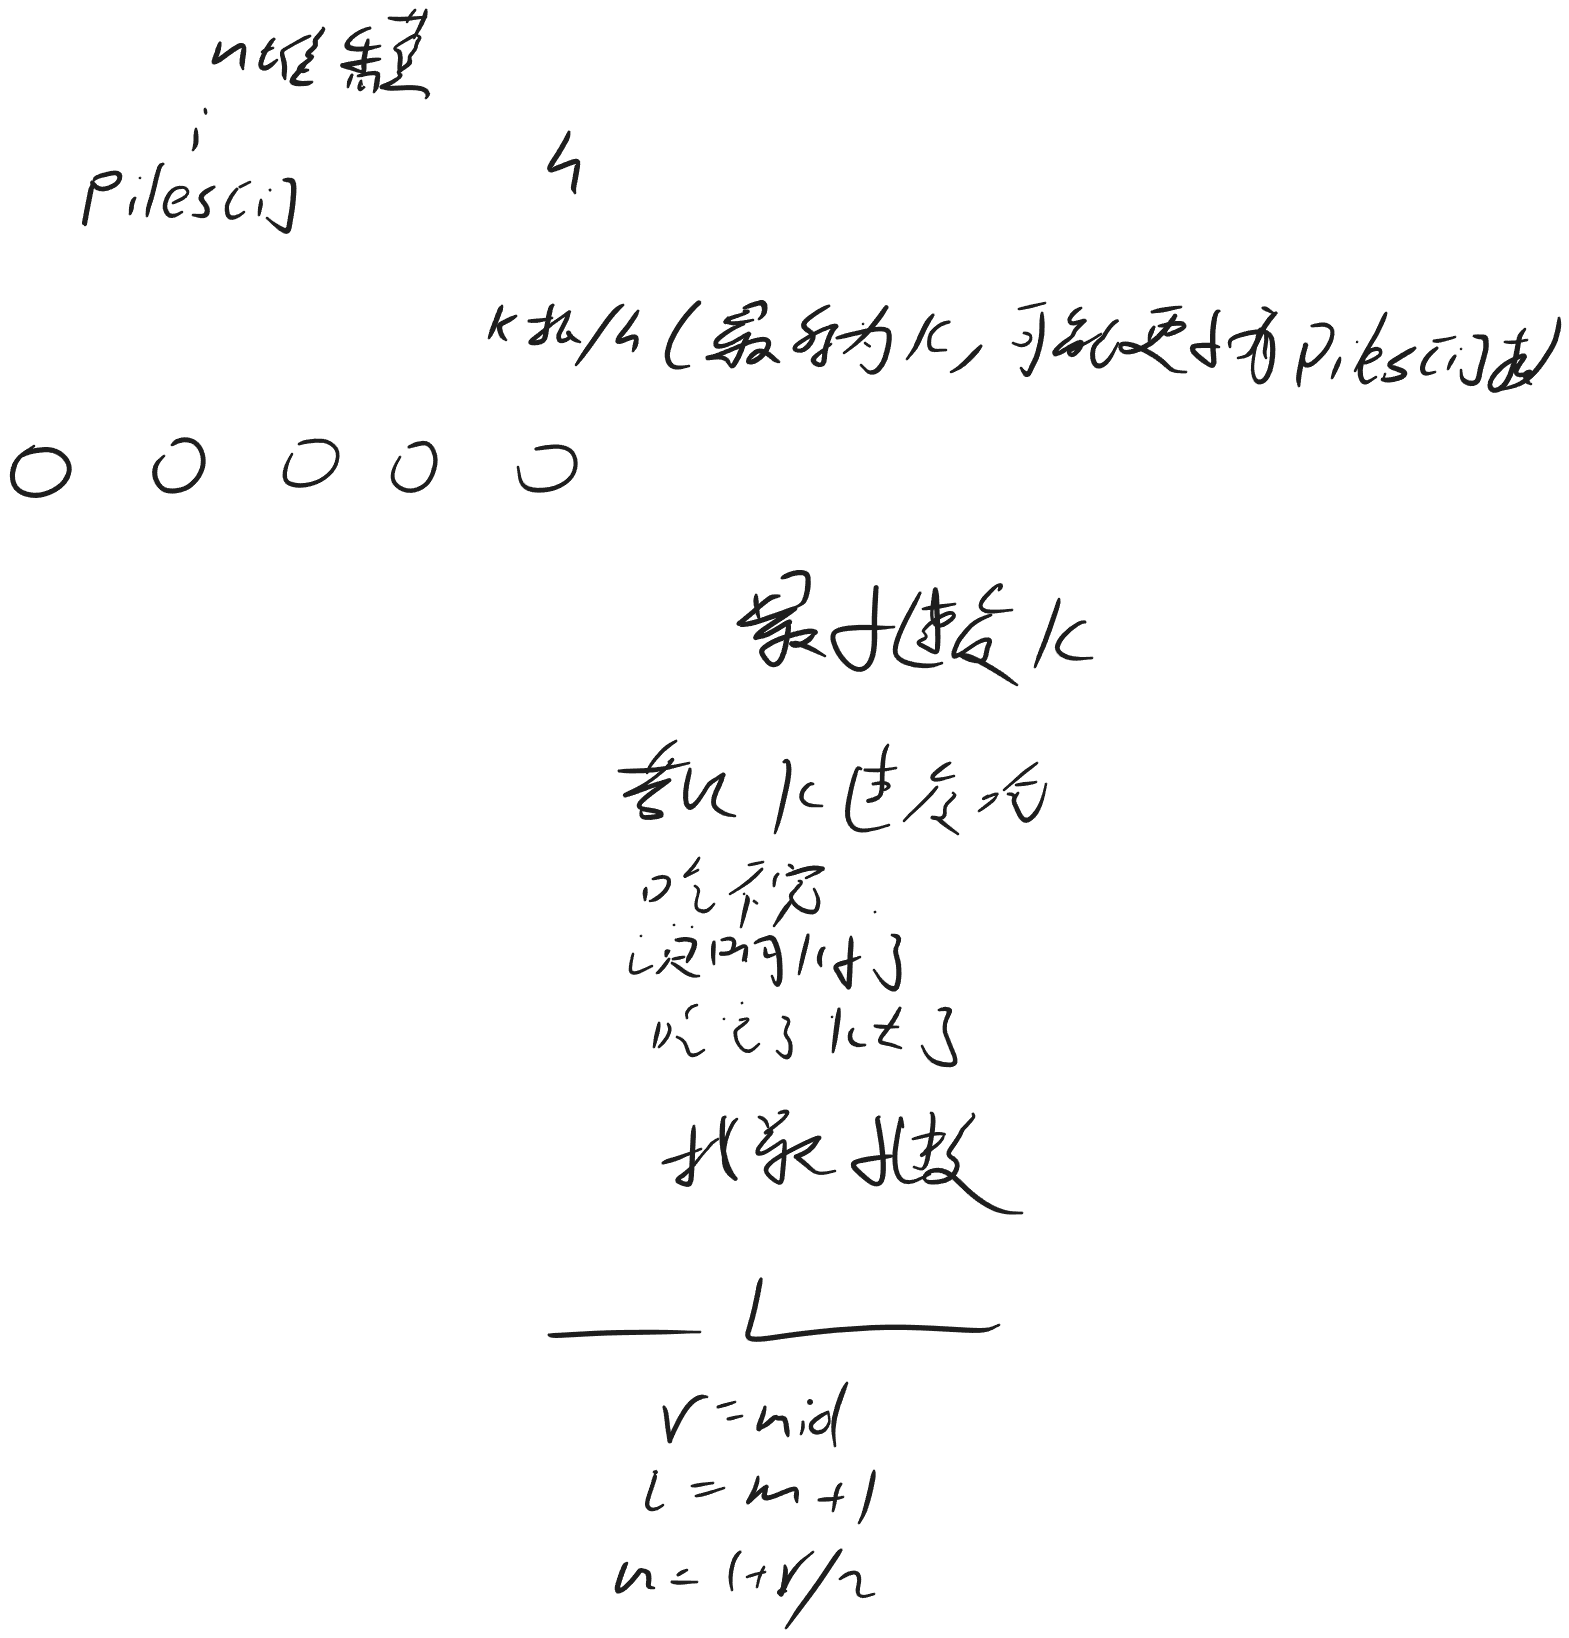 n堆蕉
i
piles[i]
h
k根/h(最多为k,可能更小为piles[i]时)
最小速度k
若以k速度吃
吃不完
说明k小了
吃完了k大了
找最小速度
r=mid
l=m+1
m=l+r/2